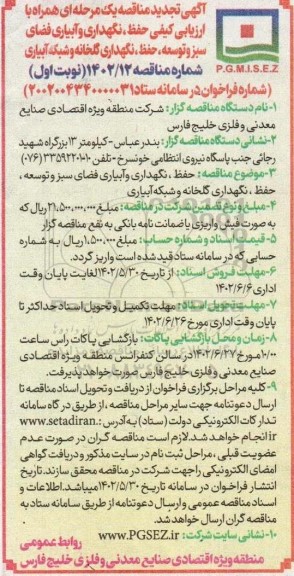 آگهی تجدید مناقصه یک مرحله ای همراه با
ارزیابی کیفی حفظ، نگهداری و آبیاری فضای
سبز و توسعه، حفظ، نگهداری گلخانه و شبکه آبیاری
شماره مناقصه ۱۴۰۲/۱۲ (نوبت اول)
P.G.M.I.S.E.Z
(شماره فراخوان در سامانه ستاد ۲۰۰۲۰۰۴۳۴۰۰۰۰۰۳۱)
۱-نام دستگاه مناقصه گزار: شرکت منطقه ویژه اقتصادی صنایع
معدنی و فلزی خلیج فارس
۲-نشانی دستگاه مناقصه گزار: بندرعباس-کیلومتر ۱۳ بزرگراه شهید
رجائی جنب پاسگاه نیروی انتظامی خونسرخ-تلفن ۱۰-۳۳۵۹۲۲۰۱ (۰۷۶)
۳-موضوع مناقصه: حفظ، نگهداری و آبیاری فضای سبز و توسعه،
حفظ، نگهداری گلخانه و شبکه آبیاری
۴-مبلغ و نوع تضمین شرکت در مناقصه: مبلغ ۲۱,۵۰۰,۰۰۰,۰۰۰ ریال که
به صورت فیش واریزی یا ضمانت نامه بانکی به نفع مناقصه گزار
۵-قیمت اسناد و شماره حساب: مبلغ ۱,۵۰۰,۰۰۰ ریال به شماره
حسابی که در سامانه ستاد قید شده است واریز گردد.
۶-مهلت فروش اسناد: از تاریخ ۱۴۰۲/۵/۳۰ لغایت پایان وقت
اداری ۱۴۰۲/۶/۶
۷-مهلت تحویل اسناد: مهلت تکمیل و تحویل اسناد حداکثر تا
پایان وقت اداری مورخ ۱۴۰۲/۶/۲۶
۸-زمان و محل بازگشایی پاکات: بازگشایی پاکات راس ساعت
۱۰/۰۰ مورخ ۱۴۰۲/۶/۲۷ در سالن کنفرانس منطقه ویژه اقتصادی
صنایع معدنی و فلزی خلیج فارس صورت خواهد پذیرفت.
۹-کلیه مراحل برگزاری فراخوان از دریافت و تحویل اسناد مناقصه تا
ارسال دعوتنامه جهت سایر مراحل مناقصه، از طریق درگاه سامانه
تدارکات الکترونیکی دولت (ستاد) به آدرس: www.setadiran.
ir انجام خواهد شد. لازم است مناقصه گران در صورت عدم
عضویت قبلی، مراحل ثبت نام در سایت مذکور و دریافت گواهی
امضای الکترونیکی را جهت شرکت در مناقصه محقق سازند. تاریخ
انتشار فراخوان در سامانه تاریخ ۱۴۰۲/۵/۳۰ میباشد. اطلاعات و
اسناد مناقصه عمومی و ارسال دعوتنامه از طریق سامانه ستاد به
مناقصه گران ارسال خواهد شد.
۱۰-نشانی سایت شرکت: www.PGSEZ.ir
روابط عمومی
منطقه ویژه اقتصادی صنایع معدنی و فلزی خلیج فارس